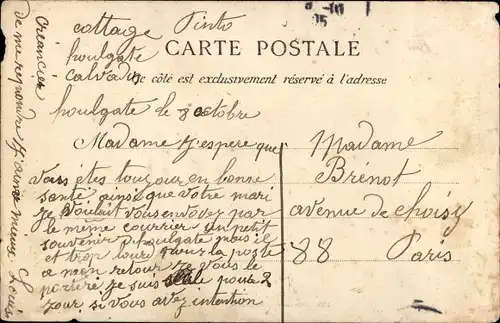 cottage Pinto
houlgate
calvados
CARTE POSTALE
Ce côté est exclusivement réservé à l'adresse
houlgate le 8 octobre
Madame J'espere que
vous êtes toujour en bonne
santé ainsi que votre mari
Je voulait vous envoyez par
le meme courrier un petit
souvenir d'houlgate mais il
et trop lourd pour la poste
a mon retour Je vous le
porteré Je suis seule pour 2
jour, si vous avez intention
de me repondre J'aime mieux Louis
créancier
Madame
Brénot
avenue de choisy
88 Paris